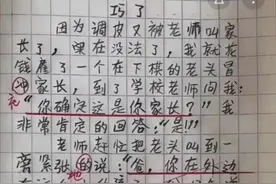 巧了
因为调皮又被老师叫家
长了，实在没法了，我就花
钱雇了一个在下棋的老头冒
冲家长，到了学校老师问我：
充
“你确定这是你家长？”我
非常肯定的回答：“是！”
老师赶忙把老头叫到一
旁紧张的说：“爸，你在外边
地